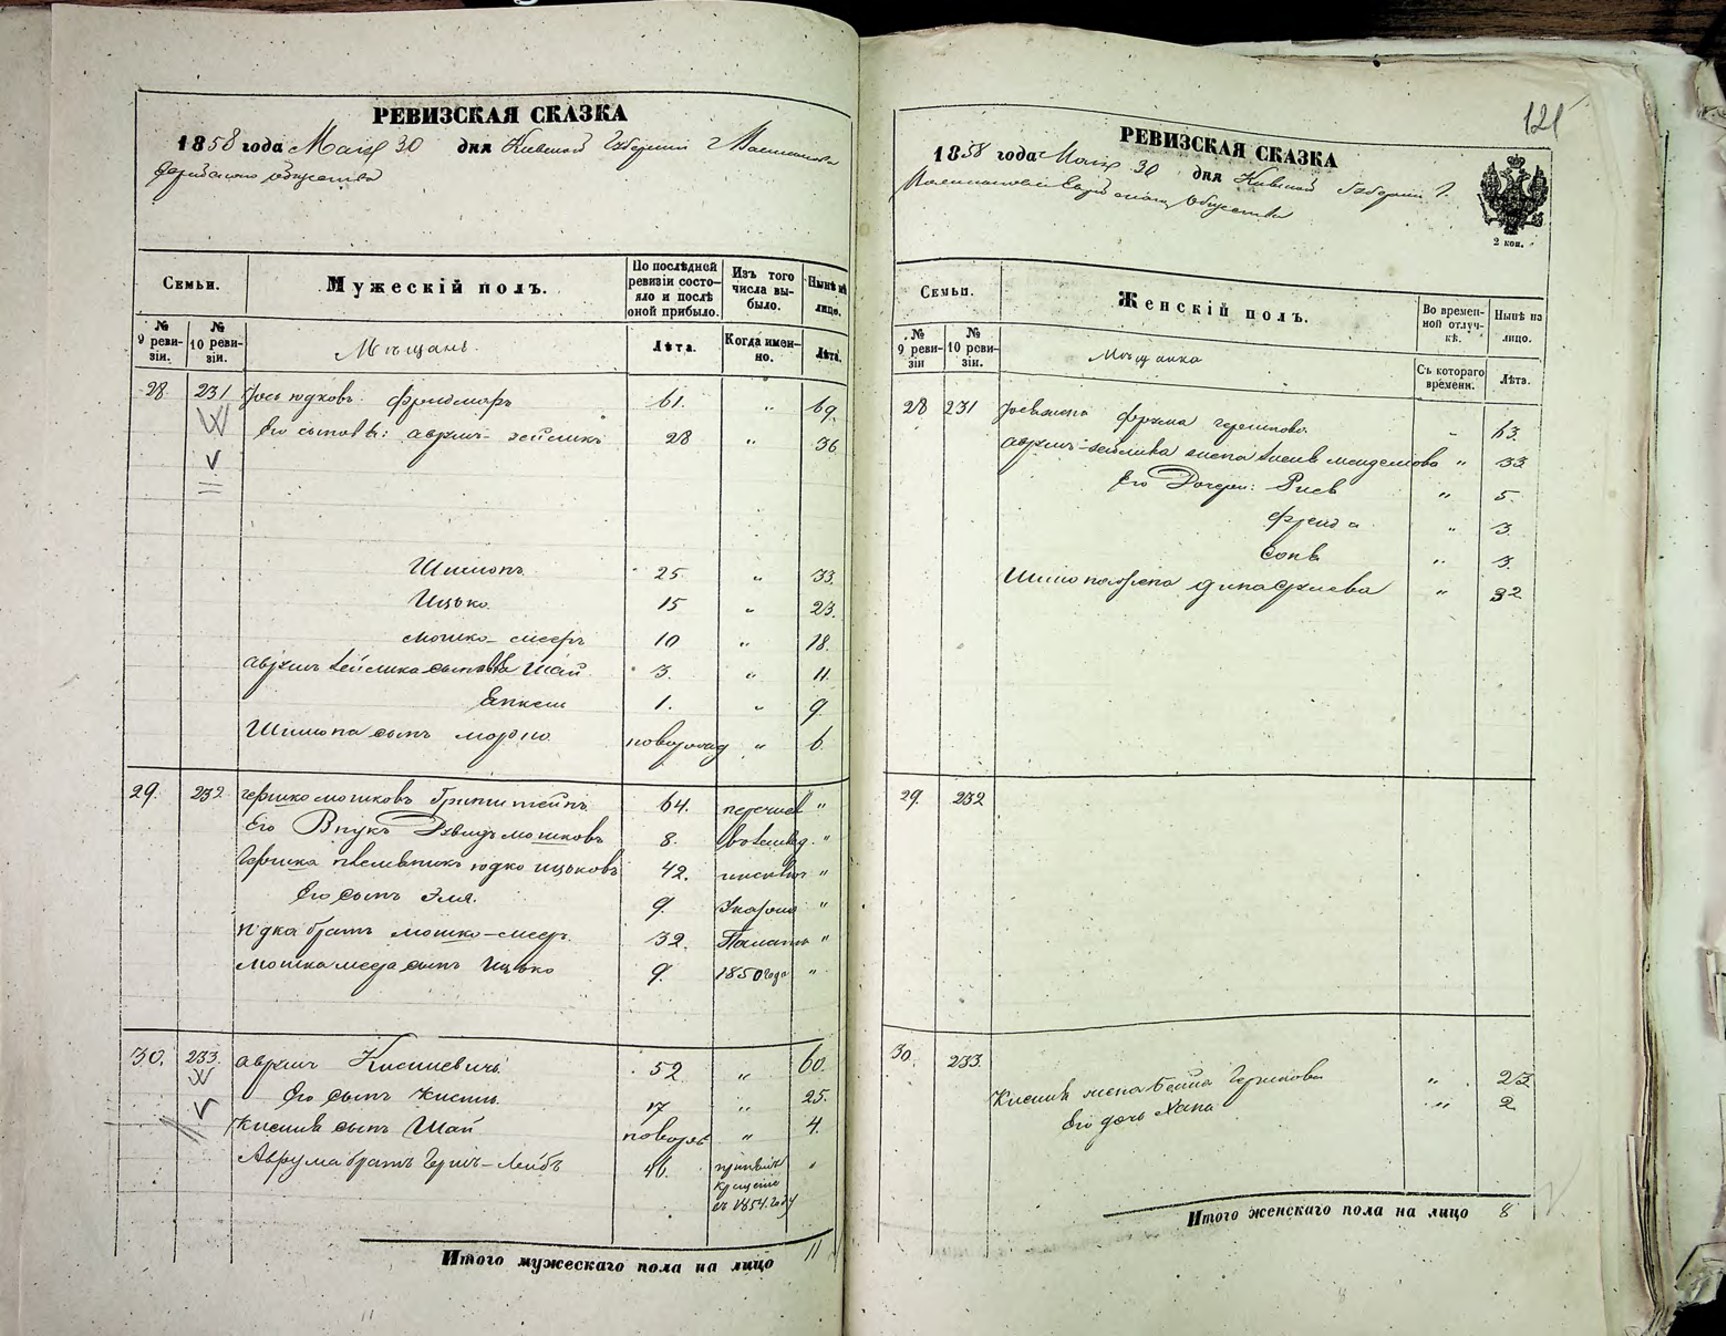 РЕВИЗСКАЯ СКАЗКА
1858 года Мая 30 дня Киевской Губернии г Василькова
Еврейского общества
Семьи. Мужескій полъ. По послѣдней ревизіи состояло и послѣ оной прибыло. Изъ того числа выбыло. Нынѣ на лицо.
№ 9 ревизіи. № 10 ревизіи. Мѣщанъ. Лѣта. Когда именно. Лѣта.
28. 231 Іось юдковъ 61. " 69.
Его сыновья: Аврумъ-Зейликъ 28 " 36
Шимонъ 25 " 33.
Ицько. 15 " 23.
Мошко-Мееръ 10 " 18.
Аврумъ Зейлика сыновья Шай 3. " 11.
1. " 9.
Шимона сынъ Мордко новорожд " 6.
29. 232 Гершко мошковъ 64. перечисл "
Его Внукъ Давидъ мошковъ 8. "
Гершка племянникъ юдко ицьковъ 42. "
Его сынъ Эля. 9. "
Юдка братъ мошко-меер. 32. "
мошка меера сынъ Ицько 9. 1850 года "
30. 233. Аврумъ Кисилевичъ 52 " 60.
Его сынъ Кисиль. 17 " 25.
Кисиля сынъ Шай новорж " 4.
Аврума братъ Герш-Лейбъ 46. принялъ крещение въ 1854 году "
Итого мужескаго пола на лицо 11
121
РЕВИЗСКАЯ СКАЗКА
1858 года Мая 30 дня Киевской Губернии г.
Васильковскаго Еврейскаго Общества
2 коп.
Семьи. Женскій полъ. Во временной отлучкѣ. Нынѣ на лицо.
№ 9 ревизіи № 10 ревизіи. Мѣщанка Съ котораго времени. Лѣта.
28 231 Іося жена Фрума гершкова " 63.
Аврумъ-Зейлика жена " 33
Его Дочери: Рися " 5.
Фрейда " 3.
Соня " 3.
Шимона жена " 32
29. 232
30. 233. Кисиля жена Бейла Гершкова " 23
Его дочь Хана " 2.
Итого женскаго пола на лицо 8